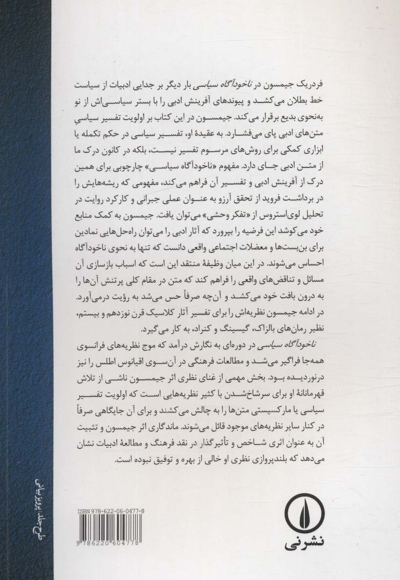 فردریک جیمسون در ناخودآگاه سیاسی بار دیگر بر جدایی ادبیات از سیاست
خط بطلان می‌کشد و پیوندهای آفرینش ادبی را با بستر سیاسی‌اش از نو
به‌نحوی بدیع برقرار می‌کند. جیمسون در این کتاب بر اولویت تفسیر سیاسیِ
متن‌های ادبی پای می‌فشارد. به عقیدهٔ او، تفسیر سیاسی در حکم تکمله یا
ابزاری کمکی برای روش‌های مرسوم تفسیر نیست، بلکه در کانون درک ما
از متن ادبی جای دارد. مفهوم «ناخودآگاه سیاسی» چارچوبی برای همین
درک از آفرینش ادبی و تفسیر آن فراهم می‌کند، مفهومی که ریشه‌هایش را
در برداشت فروید از تحقق آرزو به عنوان عملی جبرانی و کارکرد روایت در
تحلیل لوی‌استروس از «تفکر وحشی» می‌توان یافت. جیمسون به کمک منابع
خود می‌کوشد این فرضیه را بپرورد که آثار ادبی را می‌توان راه‌حل‌هایی نمادین
برای بن‌بست‌ها و معضلات اجتماعی واقعی دانست که تنها به نحوی ناخودآگاه
احساس می‌شوند. در این میان وظیفهٔ منتقد این است که اسباب بازسازی آن
مسائل و تناقض‌های واقعی را فراهم کند که متن در مقام کلی پرتنش آن‌ها را
به درون بافت خود می‌کشد و آن‌چه صرفاً حس می‌شد به رؤیت درمی‌آورد.
در ادامه جیمسون نظریه‌اش را برای تفسیر آثار کلاسیک قرن نوزدهم و بیستم،
نظیر رمان‌های بالزاک، گیسینگ و کنراد، به کار می‌گیرد.
ناخودآگاه سیاسی در دوره‌ای به نگارش درآمد که موج نظریه‌های فرانسوی
همه‌جا فراگیر می‌شد و مطالعات فرهنگی در آن‌سوی اقیانوس اطلس را نیز
درنوردیده بود. بخش مهمی از غنای نظری اثر جیمسون ناشی از تلاش
قهرمانانهٔ او برای سرشاخ‌شدن با کثیر نظریه‌هایی است که اولویت تفسیر
سیاسی یا مارکسیستی متن‌ها را به چالش می‌کشند و برای آن جایگاهی صرفاً
در کنار سایر نظریه‌های موجود قائل می‌شوند. ماندگاری اثر جیمسون و تثبیت
آن به عنوان اثری شاخص و تأثیرگذار در نقد فرهنگ و مطالعهٔ ادبیات نشان
می‌دهد که بلندپروازی نظری او خالی از بهره و توفیق نبوده است.
نشر نی
ISBN 978-622-06-0477-8
9 786220 604778
طرح جلد: پرویز بیانی